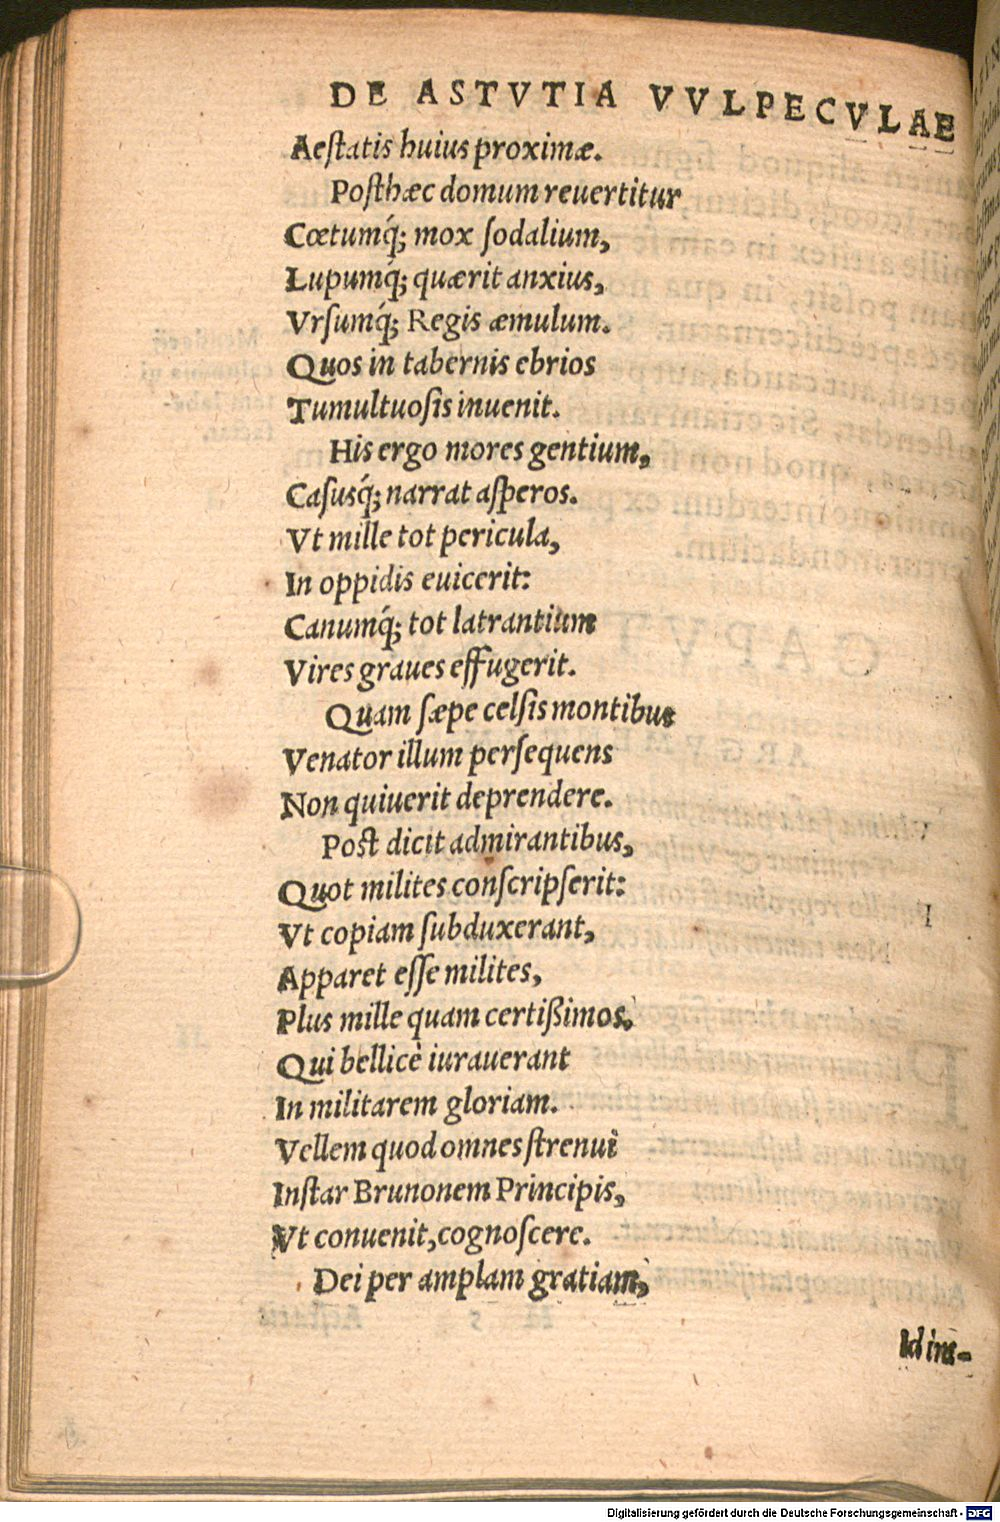 DE ASTVTIA VVLPECVLAE
Aeſtatis huius proximæ.
Poſthæc domum reuertitur
Cœtumq́; mox ſodalium,
Lupumq́; quærit anxius,
Vrſumq́; Regis æmulum.
Quos in tabernis ebrios
Tumultuoſis inuenit.
His ergo mores gentium,
Caſusq́; narrat aſperos.
Vt mille tot pericula,
In oppidis euicerit:
Canumq́; tot latrantium
Vires graues effugerit.
Quam ſæpe celſis montibus
Venator illum perſequens
Non quiuerit deprendere.
Post dicit admirantibus,
Quot milites conſcripſerit:
Vt copiam ſubduxerant,
Apparet eſſe milites,
Plus mille quam certißimos,
Qui bellicè iurauerant
In militarem gloriam.
Vellem quod omnes ſtrenuè
Inſtar Brunonem Principis,
Vt conuenit, cognoſcere.
Dei per amplam gratiam,
Id in-
Digitalisierung gefördert durch die Deutsche Forschungsgemeinschaft - DFG